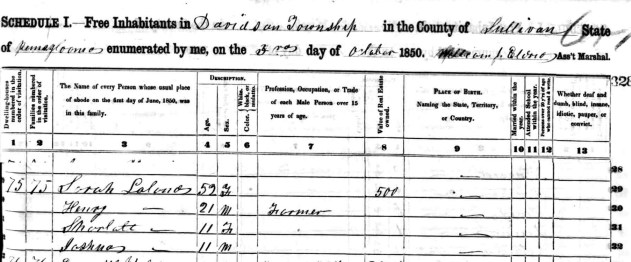 SCHEDULE I.—Free Inhabitants in Davidson Township in the County of Sullivan State
of Pennsylvania enumerated by me, on the 3rd day of October 1850. Ass't Marshal.
328
Dwelling-houses numbered in the order of visitation.
Families numbered in the order of visitation.
The Name of every Person whose usual place of abode on the first day of June, 1850, was in this family.
DESCRIPTION.
Age.
Sex.
Color, White, black, or mulatto.
Profession, Occupation, or Trade of each Male Person over 15 years of age.
Value of Real Estate owned.
PLACE OF BIRTH. Naming the State, Territory, or Country.
Married within the year.
Attended School within the year.
Persons over 20 y'rs of age who cannot read & write.
Whether deaf and dumb, blind, insane, idiotic, pauper, or convict.
1 2 3 4 5 6 7 8 9 10 11 12 13
" " 28
75 75 Sarah 52 F 500 " 29
Henry — 21 M Farmer " 20
— 11 F " 21
Joshua — 11 M " 22